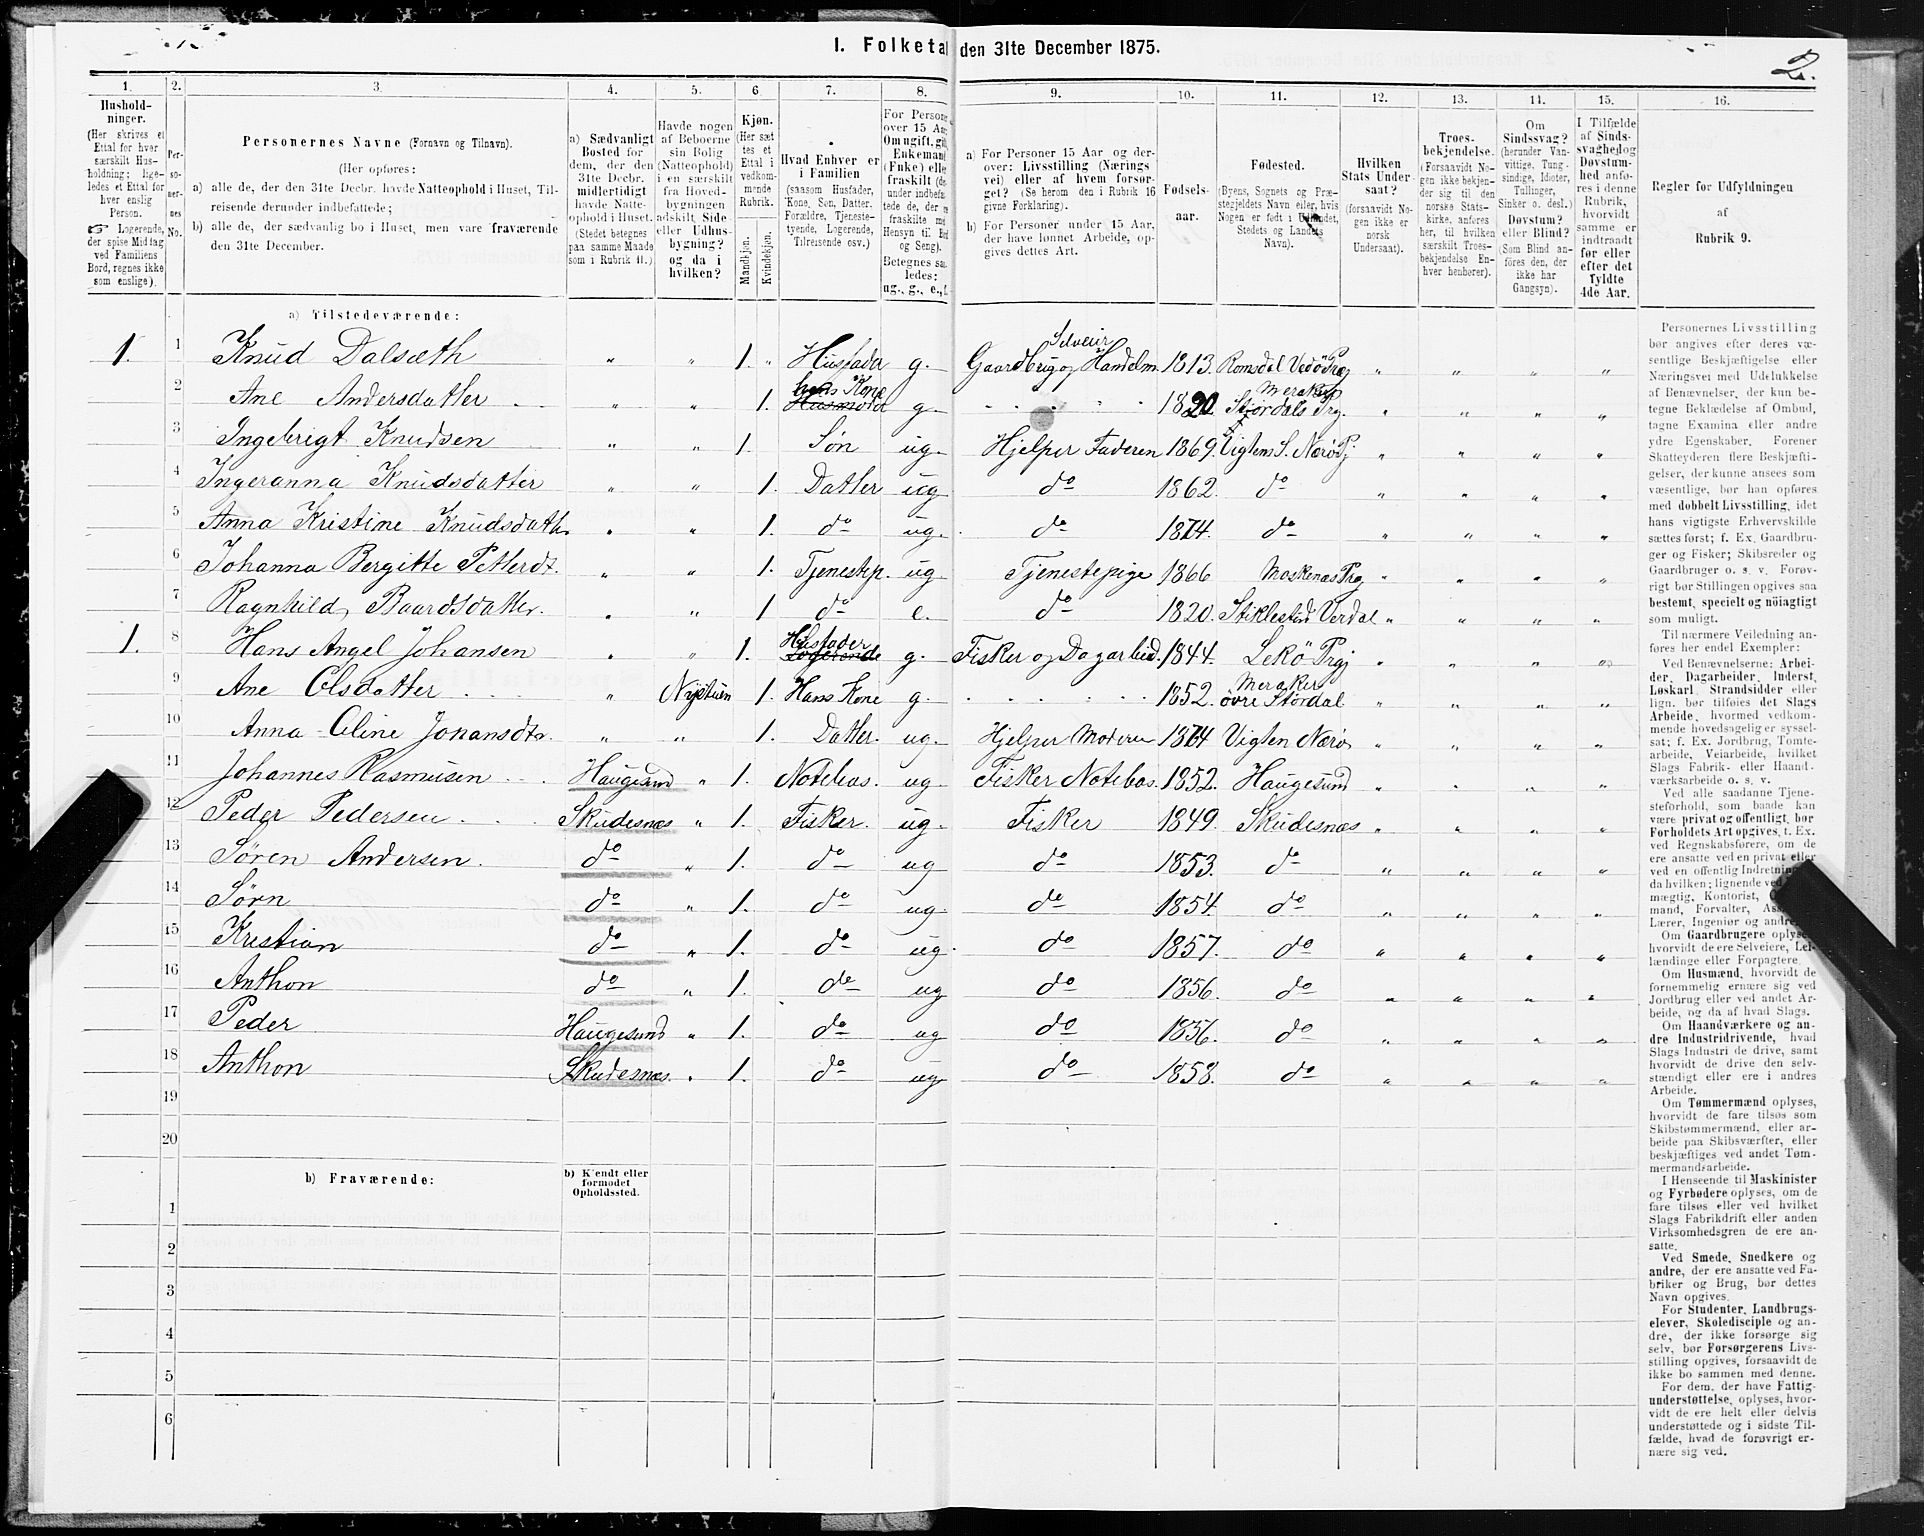 1. Folketa den 31te December 1875.
2.
1. 2. 3. 4. 5. 6 7. 8. 9. 10. 11. 12. 13. 14. 15. 16.
Hushold-
ninger.
(Her skrives et
Ettal for hver
særskilt Hus-
holdning; lige-
ledes et Ettal for
hver enslig
Person.
Logerende,
der spise Middag
ved Familiens
Bord, regnes ikke
som enslige).
Per-
so-
ner-
nes
No.
Personernes Navne (Fornavn og Tilnavn).
(Her opføres:
a) alle de, der den 31te Decbr. havde Natteophold i Huset, Til-
reisende derunder indbefattede;
b) alle de, der sædvanlig bo i Huset, men vare fraværende
den 31te December.
a) Sædvanligt
Bosted for
dem, der den
31te Decbr.
midlertidigt
havde Natte-
ophold i Huset.
(Stedet betegnes
paa samme Maade
som i Rubrik 11.)
Havde nogen
af Beboerne
sin Bolig
(Natteophold)
i en særskilt
fra Hoved-
bygningen
adskilt Side-
eller Udhus-
bygning?
og da i
hvilken?
Kjøn.
(Her sæt-
tes et
Ettal i
vedkom-
mende
Rubrik.
Mandkjøn.
Kvindekjøn.
Hvad Enhver er
i Familien
(saasom Husfader,
Kone, Søn, Datter,
Forældre, Tjeneste-
tyende, Logerende,
Tilreisende osv.)
For Person
over 15 Aar
Om ugift, gif
Enkemand
(Enke) elle
fraskilt (de
under indbefat
tede de, der
fraskilte m
Hensyn til Bo
og Seng).
Betegnes saa
ledes:
ug., g., e., f.
a) For Personer 15 Aar og der-
over: Livsstilling (Nærings
vei) eller af hvem forsør-
get? (Se herom den i Rubrik 16
givne Forklaring).
b) For Personer under 15 Aar,
der have lønnet Arbeide, op-
gives dettes Art.
Fødsels-
aar.
Fødested.
(Byens, Sognets og Præ-
stegjeldets Navn eller, hvis
Nogen er født i Udlandet,
Stedets og Landets
Navn).
Hvilken
Stats Under-
saat?
(forsaavidt No-
gen ikke er
norsk
Undersaat).
Troes-
bekjendelse.
(Forsaavidt No-
gen ikke bekjen-
der sig til den
norske Stats-
kirke, anføres
her, til hvilken
særskilt Troes-
bekjendelse En-
hver henhører).
Om
Sindssvag?
(herunder Van-
vittige, Tung-
sindige, Idioter,
Tullinger,
Sinker o. desl.)
Døvstum?
eller Blind?
(Som Blind an-
føres den, der
ikke har
Gangsyn).
I Tilfælde
af Sinds-
svaghed og
Døvstum-
hed anfø-
res i denne
Rubrik,
hvorvidt
samme er
indtraadt
før eller
efter det
fyldte
4de Aar.
Regler for Udfyldningen
af
Rubrik 9.
a) Tilstedeværende:
1. 1 Knud Dalsæth " " 1. " Husfada g. Gaardbrug og Handelm. Selveier 1813. Romsdal Vedø Præg " " " "
2 Ane Andersdatter " " 1. hans Kone Husmoder g. 1820. Meraker Størdals Prg. " " " "
3 Ingebrigt Knudsen " " 1. Søn ug. Hjelper Faderen 1869. Vigtens S. Nærø Pj " " " "
4 Ingeranna Knudsdatter " " 1. Datter ug do 1862. do " " " "
5 Anna Kristine Knudsdatt. " " 1. do ug. do 1874. do " " " "
6 Johanna Bergitte Petterdt. " " 1. Tjenestep. ug Tjenestepige 1866 Moskenæs Prg. " " " "
7 Ragnhild Baardsdatter. " " 1 do e. do 1820. Stiklestad Verdal " " " "
1. 8 Hans Angel Johansen " " 1. Husfader Logerende g. Fisker og Dagarbeid. 1844. Lekø Prgj " " " "
9 Ane Olsdatter " Nystuen 1. Hans Kone g. 1852. Meraker øvre Størdal " " " "
10 Anna Oline Johansdtr. " " 1. Datter. ug. Hjelper Moderen 1874 Vigten Nærø " " " "
11 Johannes Rasmusen Haugesund " 1. Notebas. ug. Fisker Notebas. 1852. Haugesund " " " "
12 Peder Pedersen Skudesnæs " 1. Fisker. ug. Fisker 1849. Skudesnæs " " " "
13 Søren Andersen. do " 1. do ug do 1853. do " " " "
14 Sørn do " 1. do ug do 1854. do " " " "
15 Kristian do " 1. do ug. do 1857. do " " " "
16 Anthon do " 1. do ug do 1856. do " " " "
17 Peder Haugesund " 1. do ug do 1856. do " " " "
18 Anthon Skudesnæs. " 1. do ug do 1858. do " " " "
19
20
b) Fraværende:
b) Kjendt eller
formodet
Opholdssted.
1
2
3
4
5
6
Personernes Livsstilling
bør angives efter deres væ-
sentlige Beskjæftigelse eller
Næringsvei med Udelukkelse
af Benævnelser, der kun be-
tegne Beklædelse af Ombud,
tagne Examina eller andre
ydre Egenskaber. Forener
Skatteyderen flere Beskjæfti-
gelser, der kunne ansees som
væsentlige, bør han opføres
med dobbelt Livsstilling, idet
hans vigtigste Erhvervskilde
sættes først; f. Ex. Gaardbru-
ger og Fisker; Skibsreder og
Gaardbruger o. s. v. Forøv-
rigt bør Stillingen opgives saa
bestemt, specielt og nöiagtigt
som muligt.
Til nærmere Veiledning an-
føres her endel Exempler:
Ved Benævnelserne: Arbei-
der, Dagarbeider, Inderst,
Løskarl, Strandsidder eller
lign. bør tilføies det Slags
Arbeide, hvormed vedkom-
mende hovedsagelig er syssel-
sat; f. Ex. Jordbrug, Tomte-
arbeide, Veiarbeide, hvilket
Slags Fabrik- eller Haand-
værksarbeide o. s. v.
Ved alle saadanne Tjene-
steforhold, som baade kan
være privat og offentligt, bør
Forholdets Art opgives, t. Ex.
ved Regnskabsførere, om de
ere ansatte ved en privat eller
ved en offentlig Indretning
da hvilken; lignende ved
mægtig, Kontorist,
mand, Forvalter,
Lærer, Ingeniør og andre
Om Gaardbrugere oplyses,
hvorvidt de ere Selveiere, Lei-
lændinge eller Forpagtere.
Om Husmænd, hvorvidt de
fornemmelig ernære sig ved
Jordbrug eller ved andet Ar-
beide, og da af hvad Slags.
Om Haandværkere og an-
dre Industridrivende, hvad
Slags Industri de drive, samt
hvorvidt de drive den selv-
stændigt eller ere i andres
Arbeide.
Om Tømmermænd oplyses,
hvorvidt de fare tilsøs som
Skibstømmermænd, eller ar-
beide paa Skibsværfter, eller
beskjæftiges ved andet Tøm-
mermandsarbeide.
I Henseende til Maskinister
og Fyrbødere oplyses, om de
fare tilsøs eller ved hvilket
Slags Fabrikdrift eller anden
Virksomhedsgren de ere an-
satte.
Ved Smede, Snedkere og
andre, der ere ansatte ved Fa-
briker og Brug, bør dettes
Navn opgives.
For Studenter, Landbrugs-
elever, Skoledisciple og an-
dre, der ikke forsørge sig
selv, bør Forsørgerens Livs-
stilling opgives, forsaavidt de
ikke bo sammen med denne.
For dem, der have Fattig-
understøttelse, oplyses, hvor-
vidt de ere helt eller delvis
understøttede og i sidste Til-
fælde, hvad de forøvrigt er-
nære sig ved.